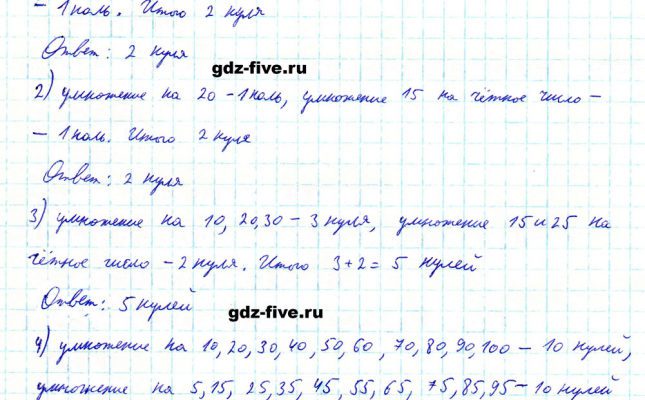 - 1 ноль. Итого 2 нуля
Ответ: 2 нуля
gdz-five.ru
2) умножение на 20 - 1 ноль, умножение 15 на чётное число -
- 1 ноль. Итого 2 нуля
Ответ: 2 нуля
3) умножение на 10, 20, 30 - 3 нуля, умножение 15 и 25 на
чётное число - 2 нуля. Итого 3 + 2 = 5 нулей
Ответ: 5 нулей
gdz-five.ru
4) умножение на 10, 20, 30, 40, 50, 60, 70, 80, 90, 100 - 10 нулей,
умножение на 5, 15, 25, 35, 45, 55, 65, 75, 85, 95 - 10 нулей